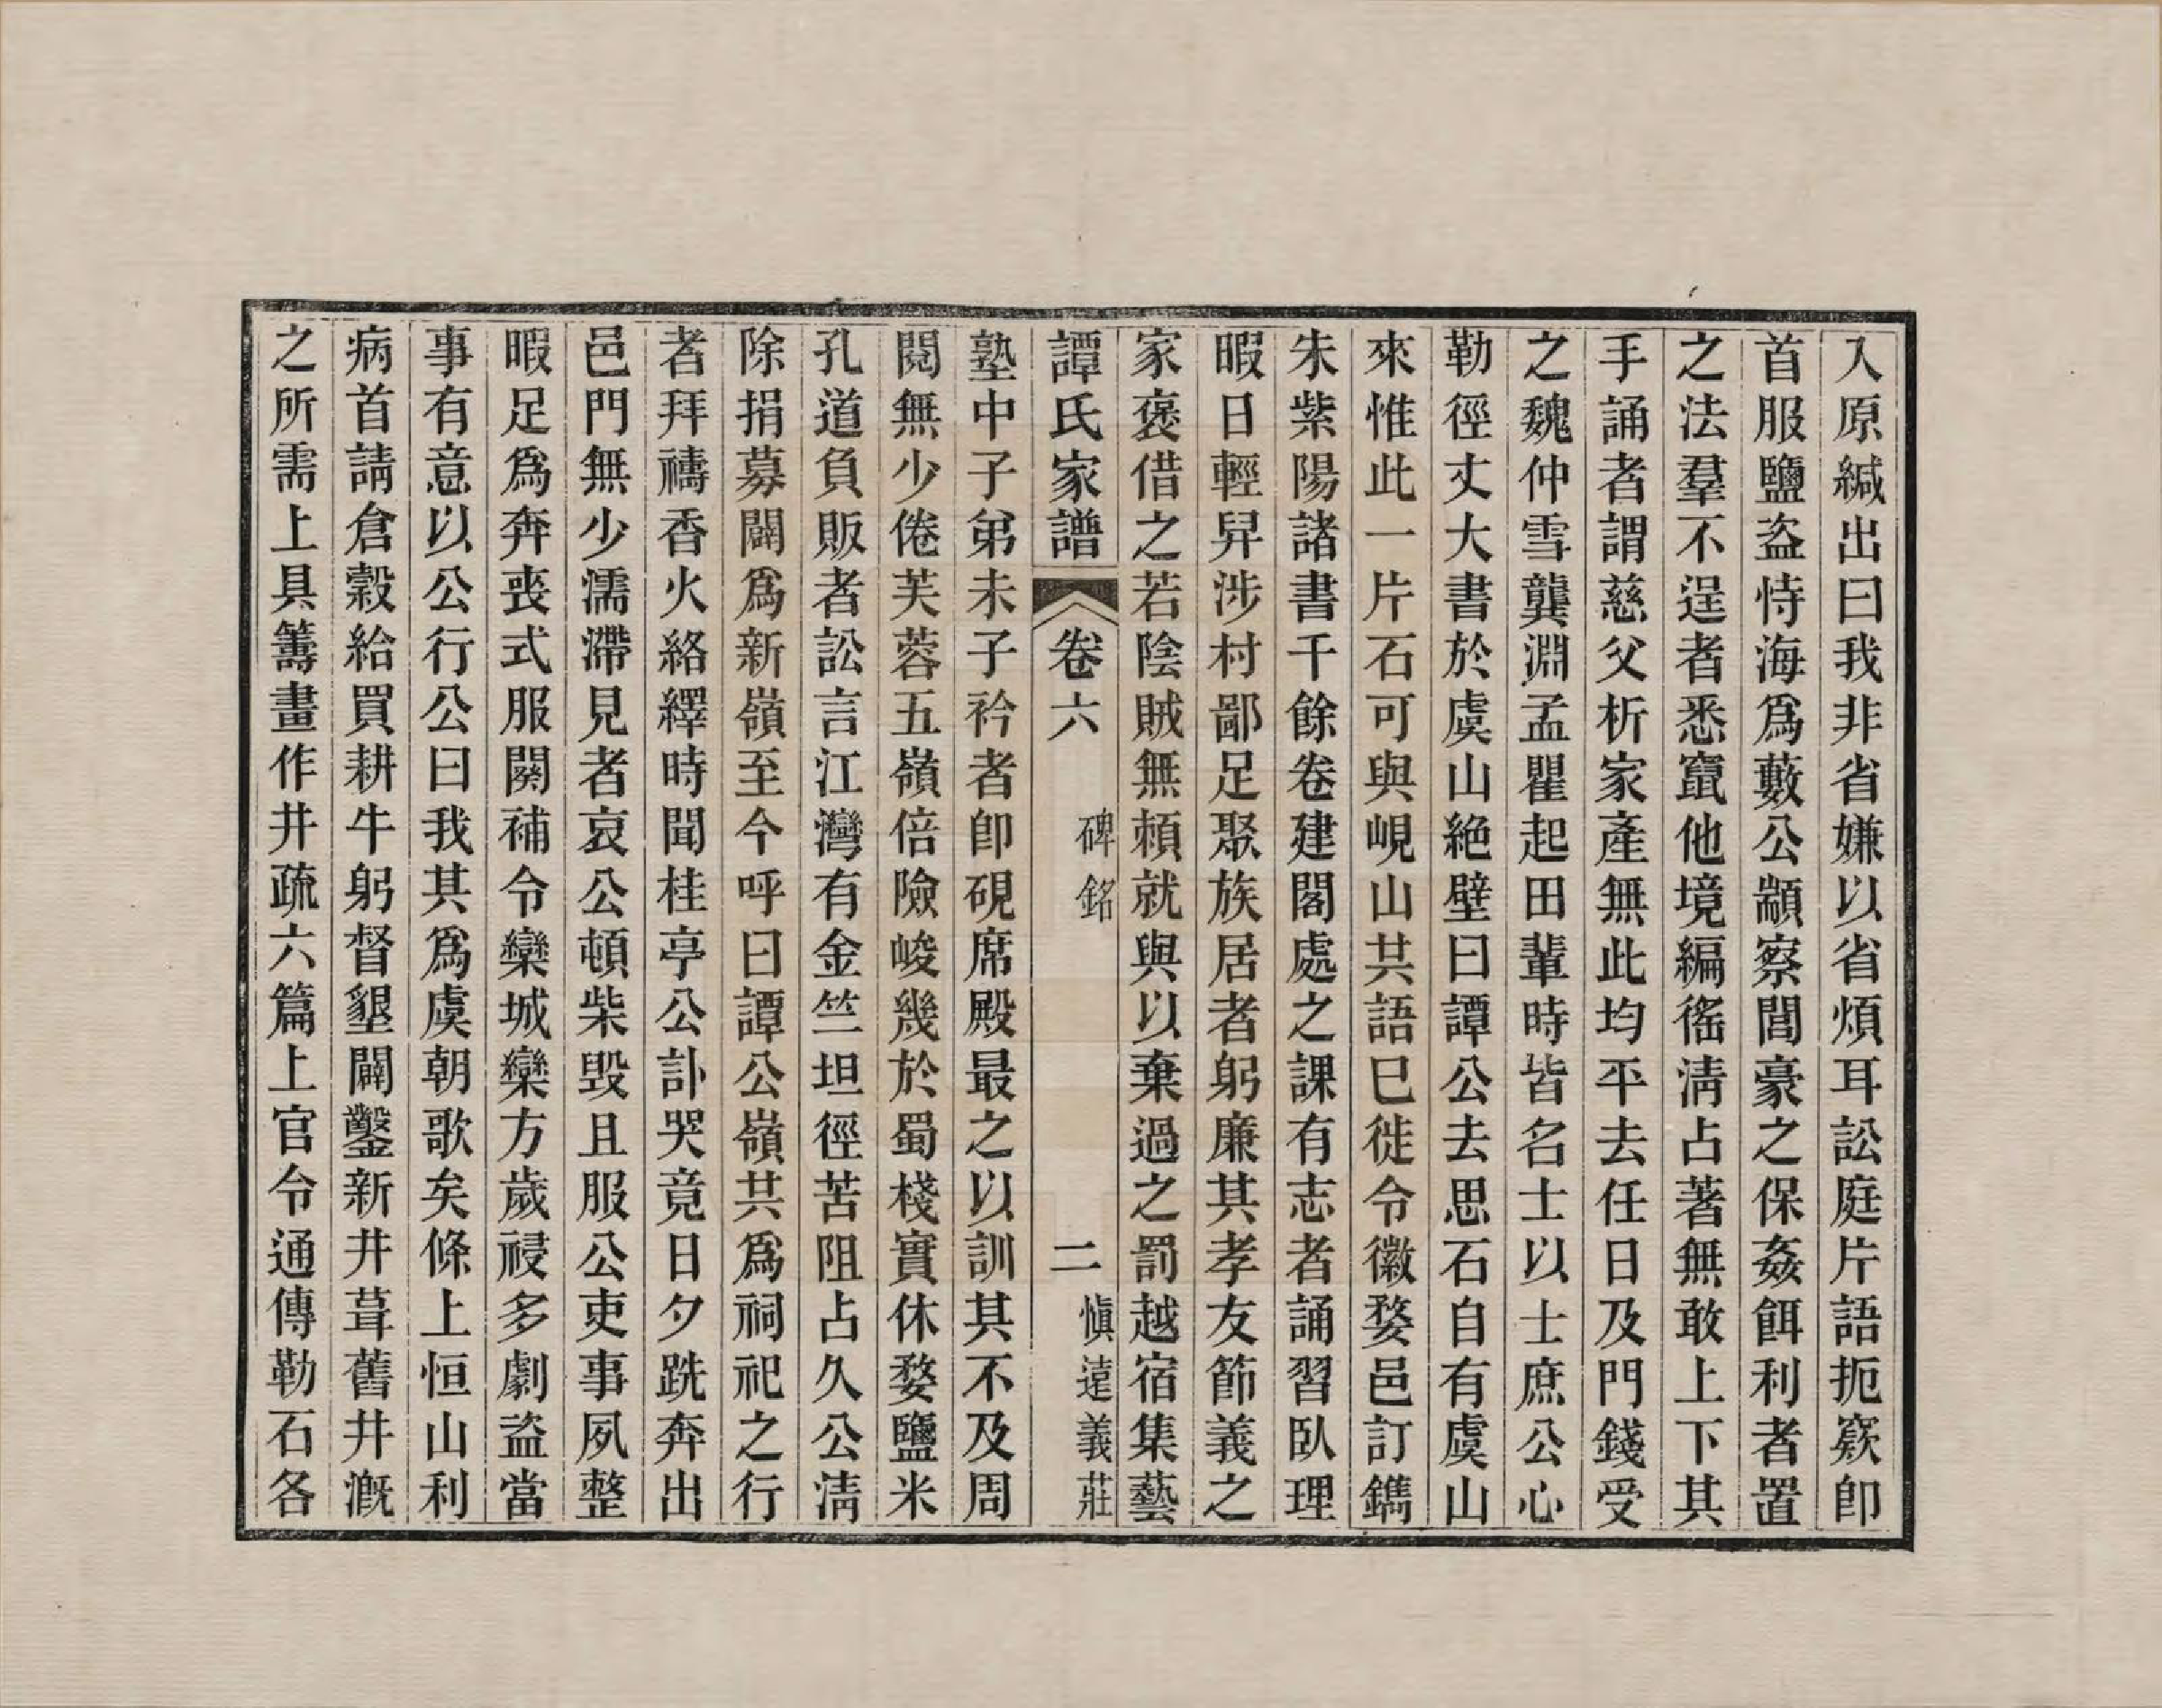 入原緘出曰我非省嫌以省煩耳訟庭片語扼窾卽
首服鹽盜恃海爲藪公顓察閭豪之保姦餌利者置
之法羣不逞者悉竄他境編徭淸占著無敢上下其
手誦者謂慈父析家產無此均平去任日及門錢受
之魏仲雪龔淵孟瞿起田輩時皆名士以士庶公心
勒徑丈大書於虞山絕壁曰譚公去思石自有虞山
來惟此一片石可與峴山共語巳徙令徽婺邑訂鐫
朱紫陽諸書千餘卷建閣處之課有志者誦習臥理
暇日輕舁涉村鄙足聚族居者躬廉其孝友節義之
家褒借之若陰賊無賴就與以棄過之罰越宿集藝
譚氏家譜 卷六 碑銘 二 愼遠義莊
塾中子弟未子衿者卽硯席殿最之以訓其不及周
閱無少倦芙蓉五嶺倍險峻幾於蜀棧實休婺鹽米
孔道負販者訟言江灣有金竺坦徑苦阻占久公淸
除捐募闢爲新嶺至今呼曰譚公嶺共爲祠祀之行
者拜禱香火絡繹時聞桂亭公訃哭竟日夕跣奔出
邑門無少濡滯見者哀公頓柴毀且服公吏事夙整
暇足爲奔喪式服闋補令欒城欒方歲祲多劇盜當
事有意以公行公曰我其爲虞朝歌矣條上恒山利
病首請倉穀給買耕牛躬督墾闢鑿新井葺舊井漑
之所需上具籌畫作井疏六篇上官令通傳勒石各